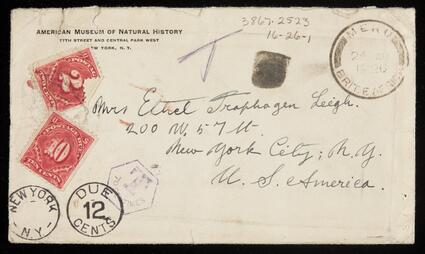 AMERICAN MUSEUM OF NATURAL HISTORY
77TH STREET AND CENTRAL PARK WEST
NEW YORK, N. Y.
3867-2523
16-26-1
T
MERU
24
1926
POSTAGE DUE
2
POSTAGE DUE
10
TEN CENTS
Mrs Ethel Traphagen Leigh.
200 W. 57 St.
New York City, N.Y.
U. S. America.
NEW YORK
N.Y.
DUE
12
CENTS